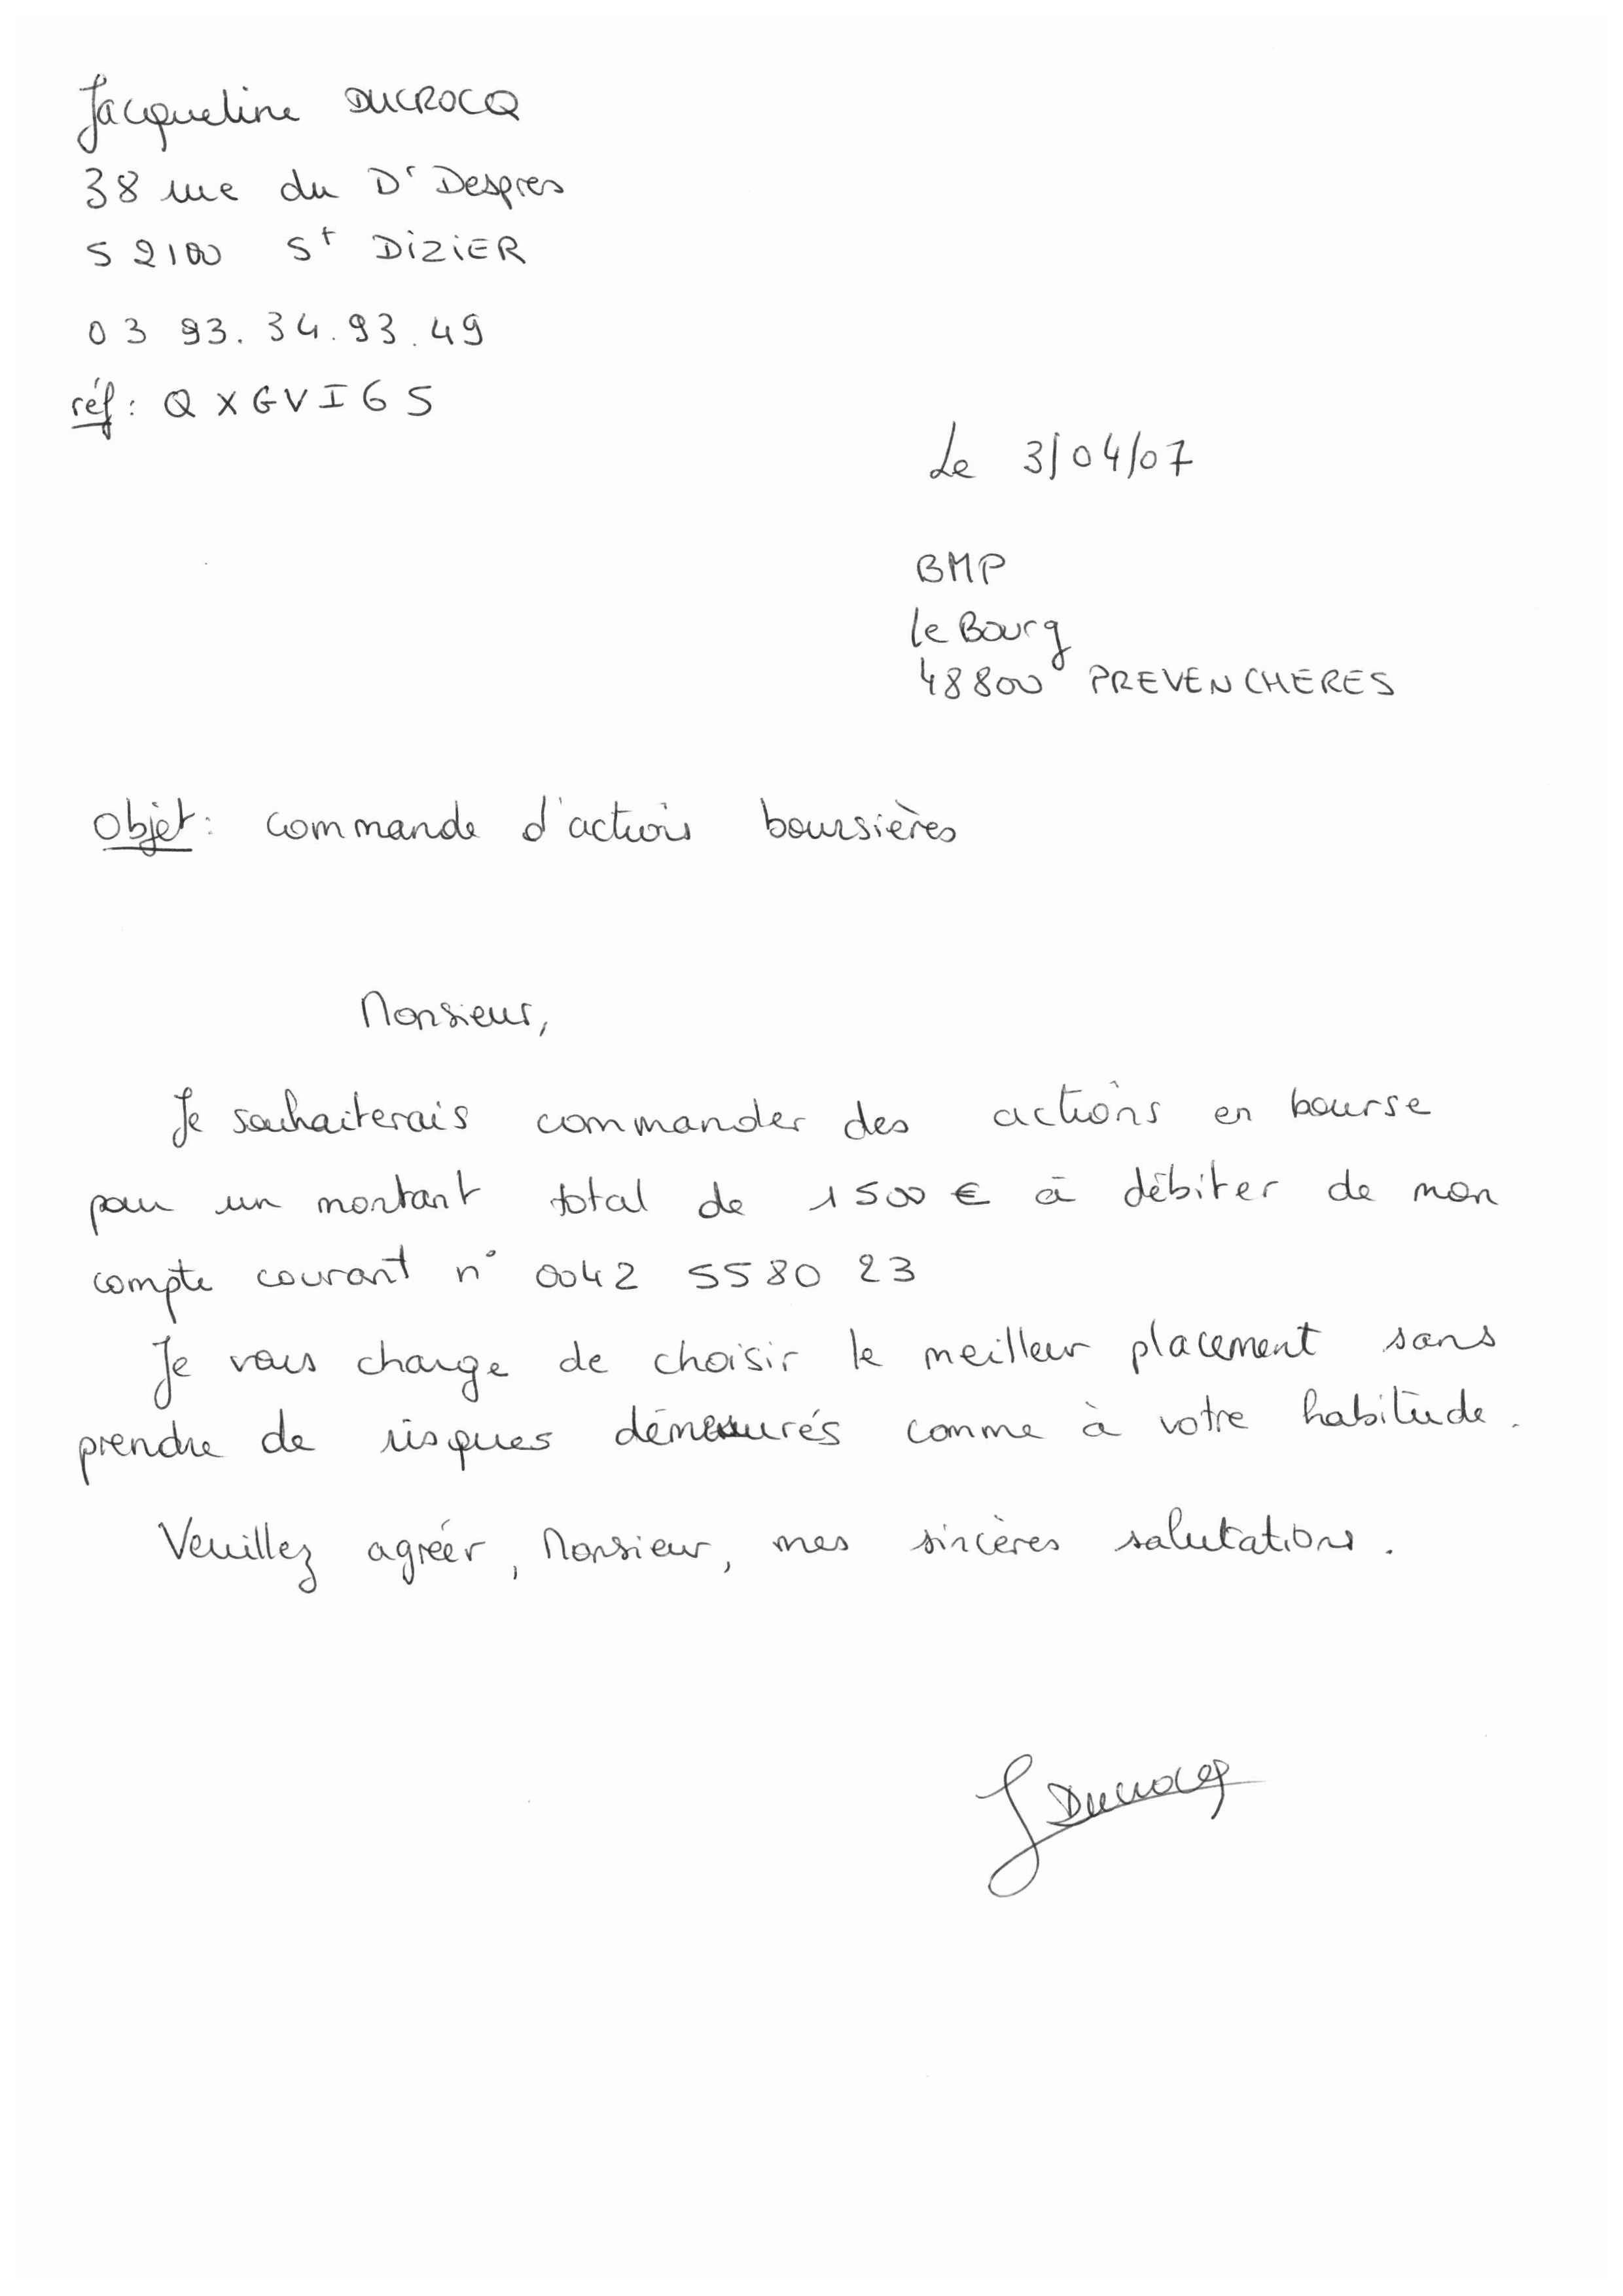 Jacqueline DUCROCQ
38 rue du Dr Despres
52100 St DIZIER
03 93.34.93.49
réf: QXGVI65
Le 3/04/07
BMP
le Bourg
48800 PREVENCHERES
Objet: commande d'actions boursières
Monsieur,
Je souhaiterais commander des actions en bourse
pour un montant total de 1500 € à débiter de mon
compte courant n° 0042 5580 23
Je vous charge de choisir le meilleur placement sans
prendre de risques démesurés comme à votre habitude.
Veuillez agréer, Monsieur, mes sincères salutations.
J Ducrocq